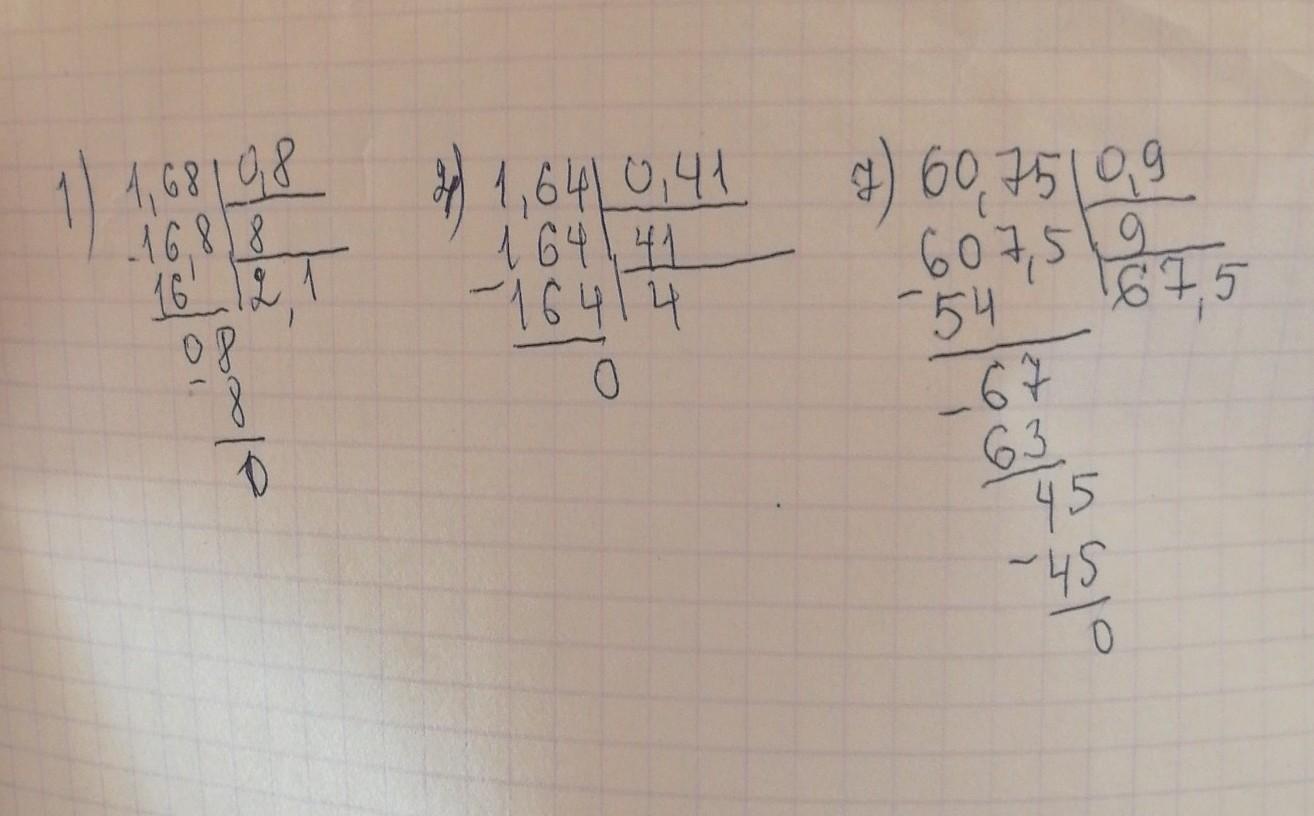 1) 1,68 0,8
16,8 8
16 2,1
08
- 8
0
4) 1,64 0,41
164 41
- 164 4
0
7) 60,75 0,9
607,5 9
- 54 67,5
67
- 63
45
- 45
0